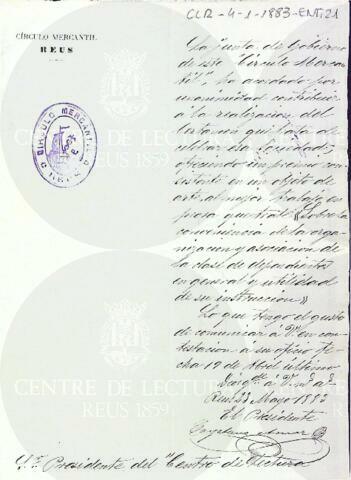 CLR-4-1-1883-ENT.21
CÍRCULO MERCANTIL
REUS
La Junta de Gobierno
de este "Círculo Mercan-
til", ha acordado por
unanimidad contribuir
a la realización del
Certamen que ha de ce-
lebrar esa Sociedad,
ofreciendo un premio con-
sistente en un objeto de
arte, al mejor trabajo en
prosa que trate «Sobre la
conveniencia de la orga-
nizacion y asociacion de
la clase de dependientes
en general y utilidad
de su instruccion»
Lo que tengo el gusto
de comunicar a V. en con-
testacion a su oficio fe-
cha 19 de Abril último
Reus 23 Mayo 1883
El Presidente
Sr. Presidente del "Centro de Lectura
CIRCULO MERCANTIL
REUS
CENTRE DE LECTURA
REUS 1859